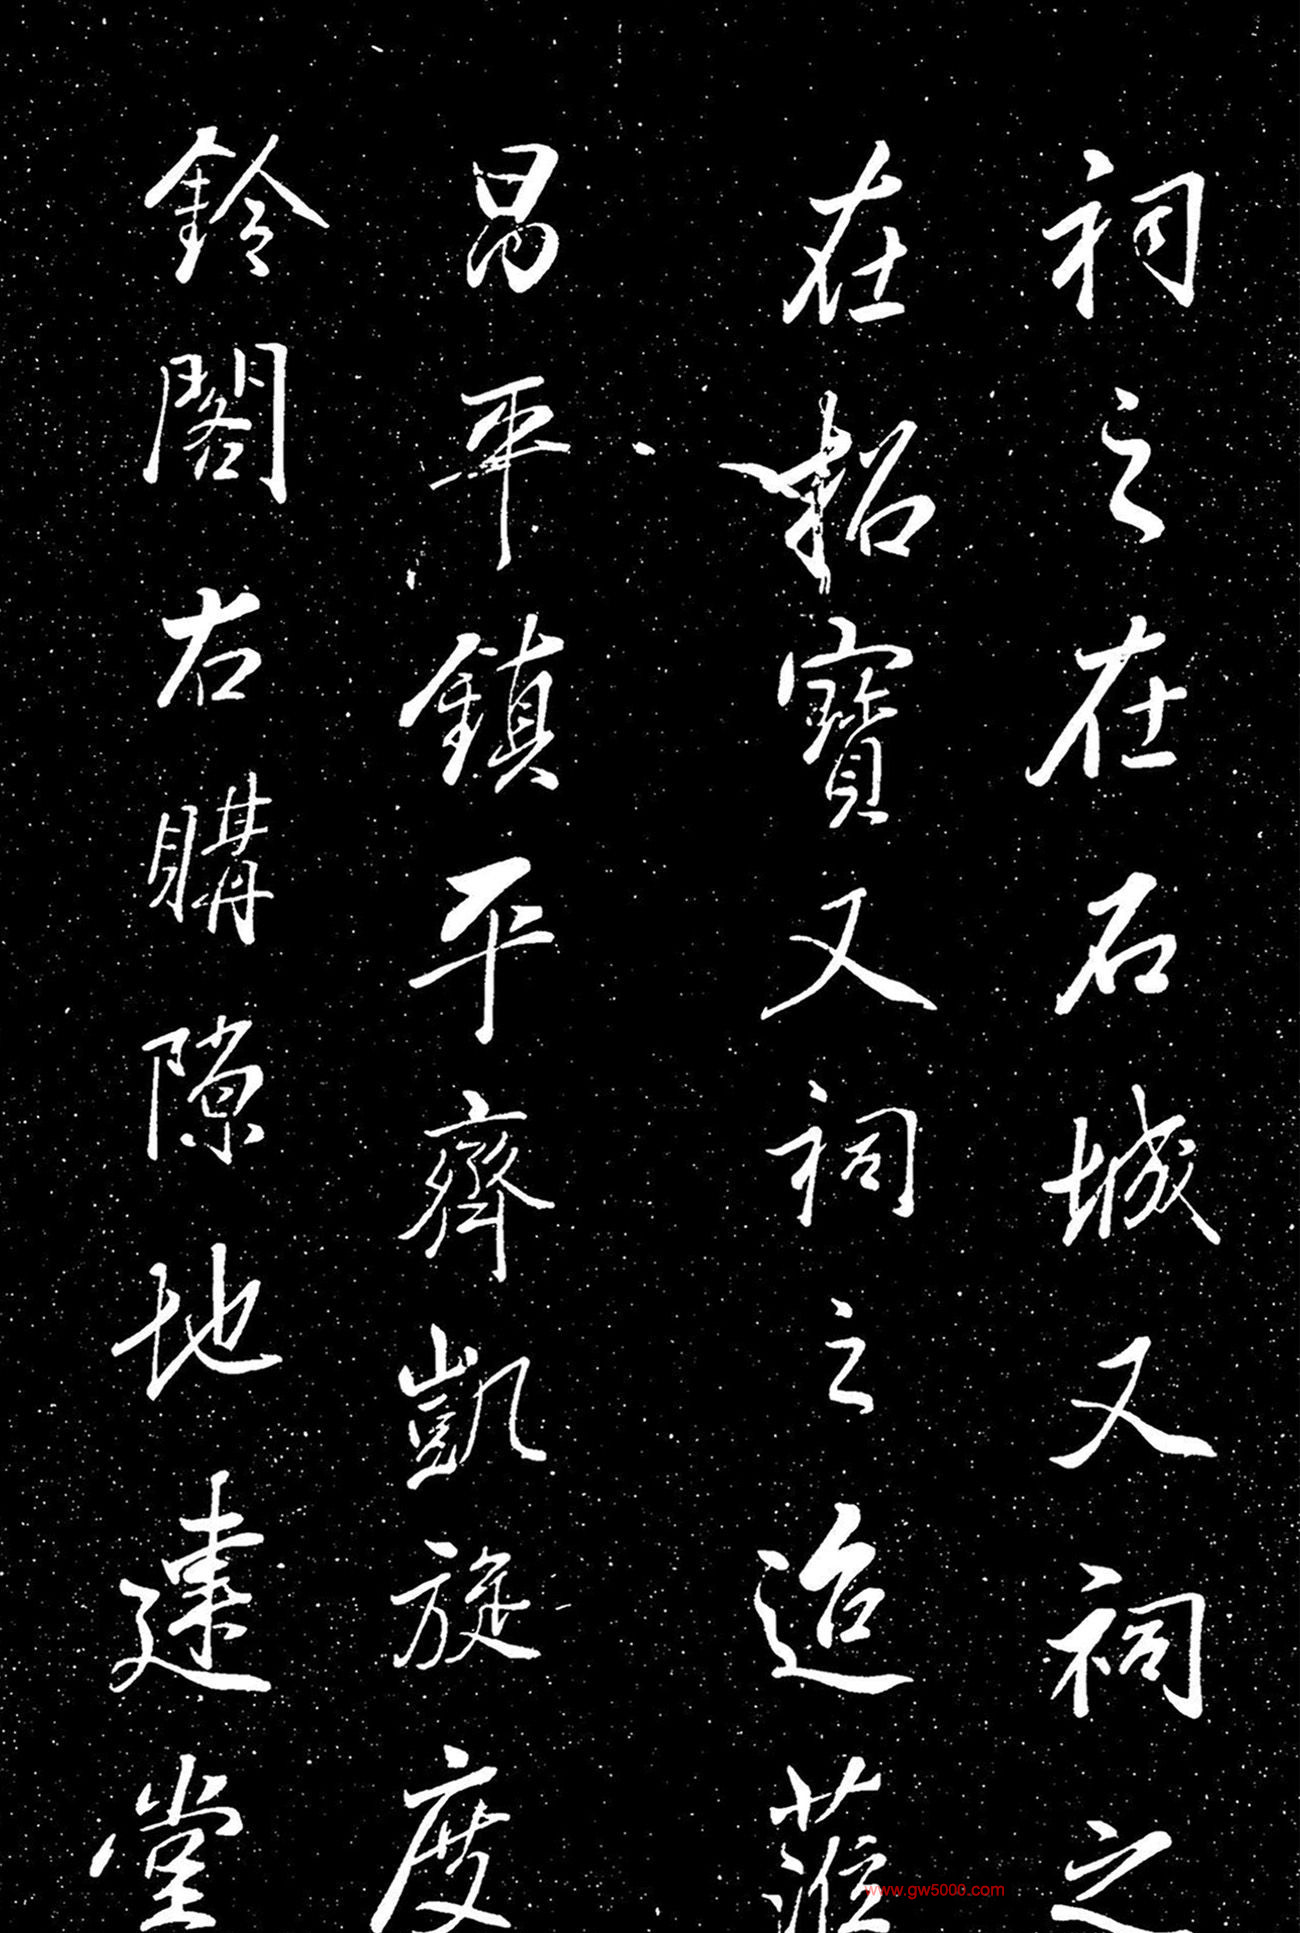 祠之在石城又祠之
在招寶又祠之迨蒞
昌平鎮平齊凱旋度
鈴閣右購隙地建堂
www.gw5000.com